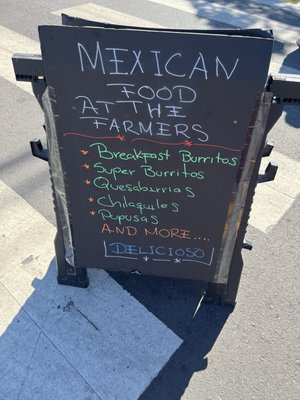 MEXICAN
FOOD
AT THE
FARMERS
* Breakfast Burritos
* Super Burritos
* Quesabirrias
* Chilaquiles
* Pupusas
AND MORE....
DELICIOSO